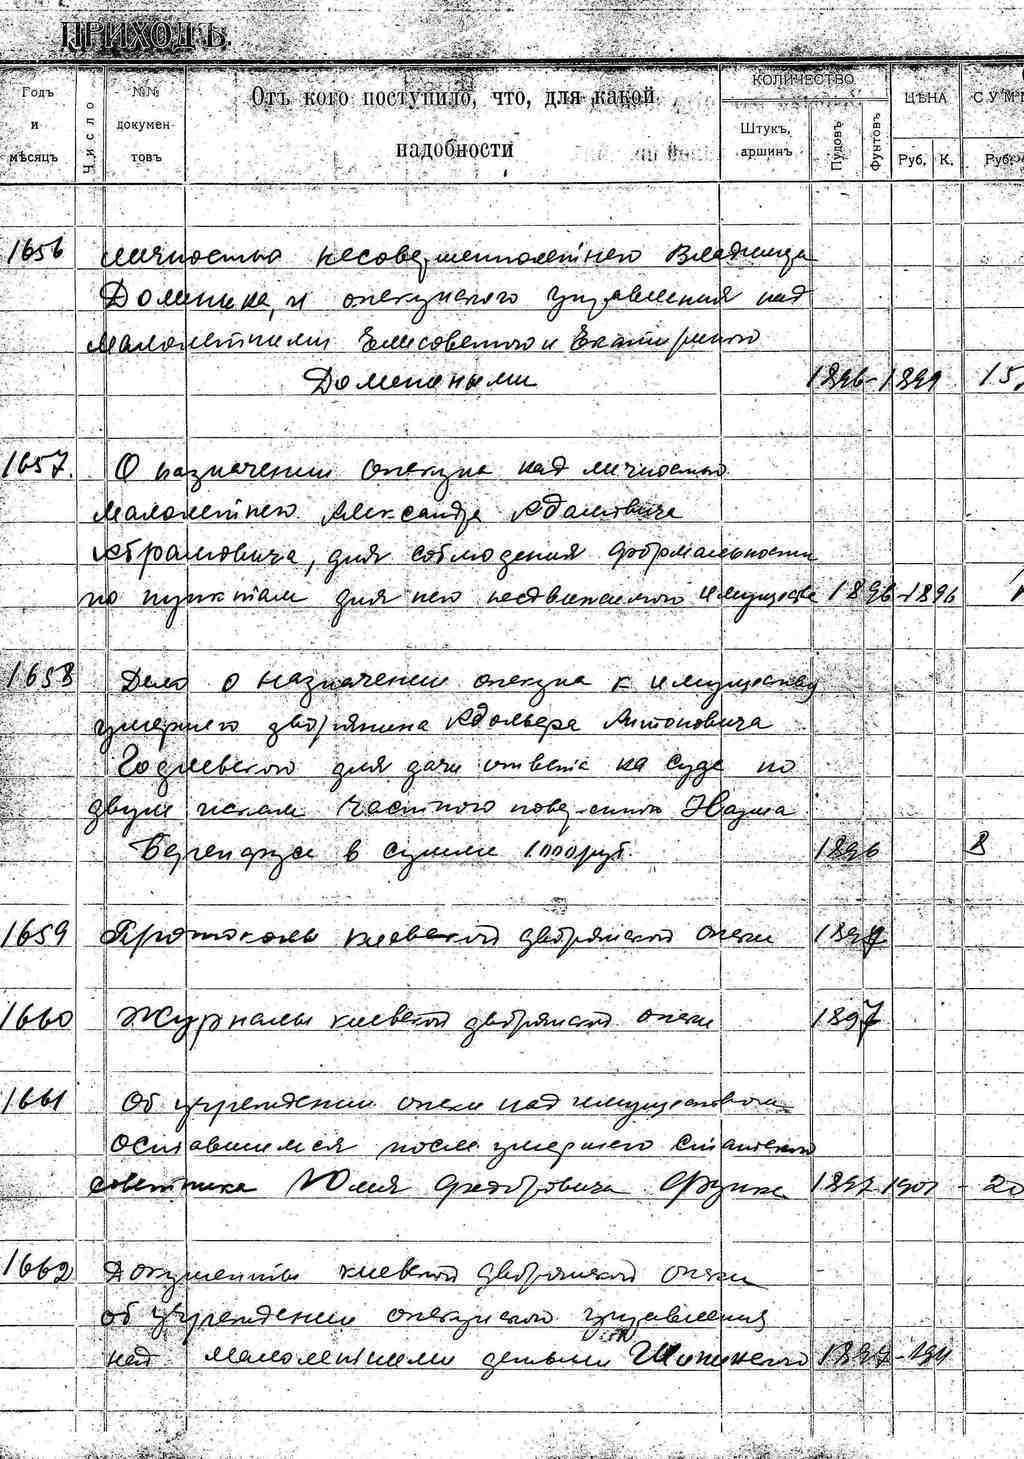 ПРИХОДЪ.
Годъ и мѣсяцъ
Число
№№ документовъ
Отъ кого поступило, что, для какой надобности
КОЛИЧЕСТВО
Штукъ, аршинъ
Пудовъ
Фунтовъ
ЦѢНА
Руб. К.
СУММ
Руб.
1656 личностью несовершеннолетнего Владимира
Доминика, и опекунского управления над
малолетними Елисоветою и Екатериною
Домениными 1896-1899 15
1657. О назначении опекуна над личностью
малолетнего Александра Адамовича
Абрамовича, для соблюдения формальности
по пунктам для него недвижимого имущества 1896-1896
1658 Дело о назначении опекуна к имуществу
умершего дворянина Адольфа Антоновича
Годлевского для дачи ответа на суде по
двум искам частного поверенного
в сумме 1000 руб. 1896 8
1659 Протоколы киевской дворянской опеки 1897
1660 Журналы киевской дворянской опеки 1897
1661 Об учреждении опеки над имуществом
оставшимся после умершего статского
советника Юлия Федоровича Функе 1897-1901 - 20
1662 Документы киевской дворянской опеки
об учреждении опекунского управления
над малолетними детьми 1897-1911